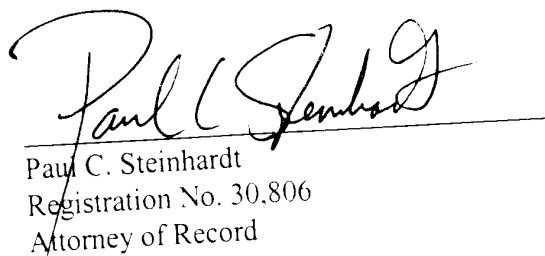 Paul C Steinhardt
Paul C. Steinhardt
Registration No. 30,806
Attorney of Record